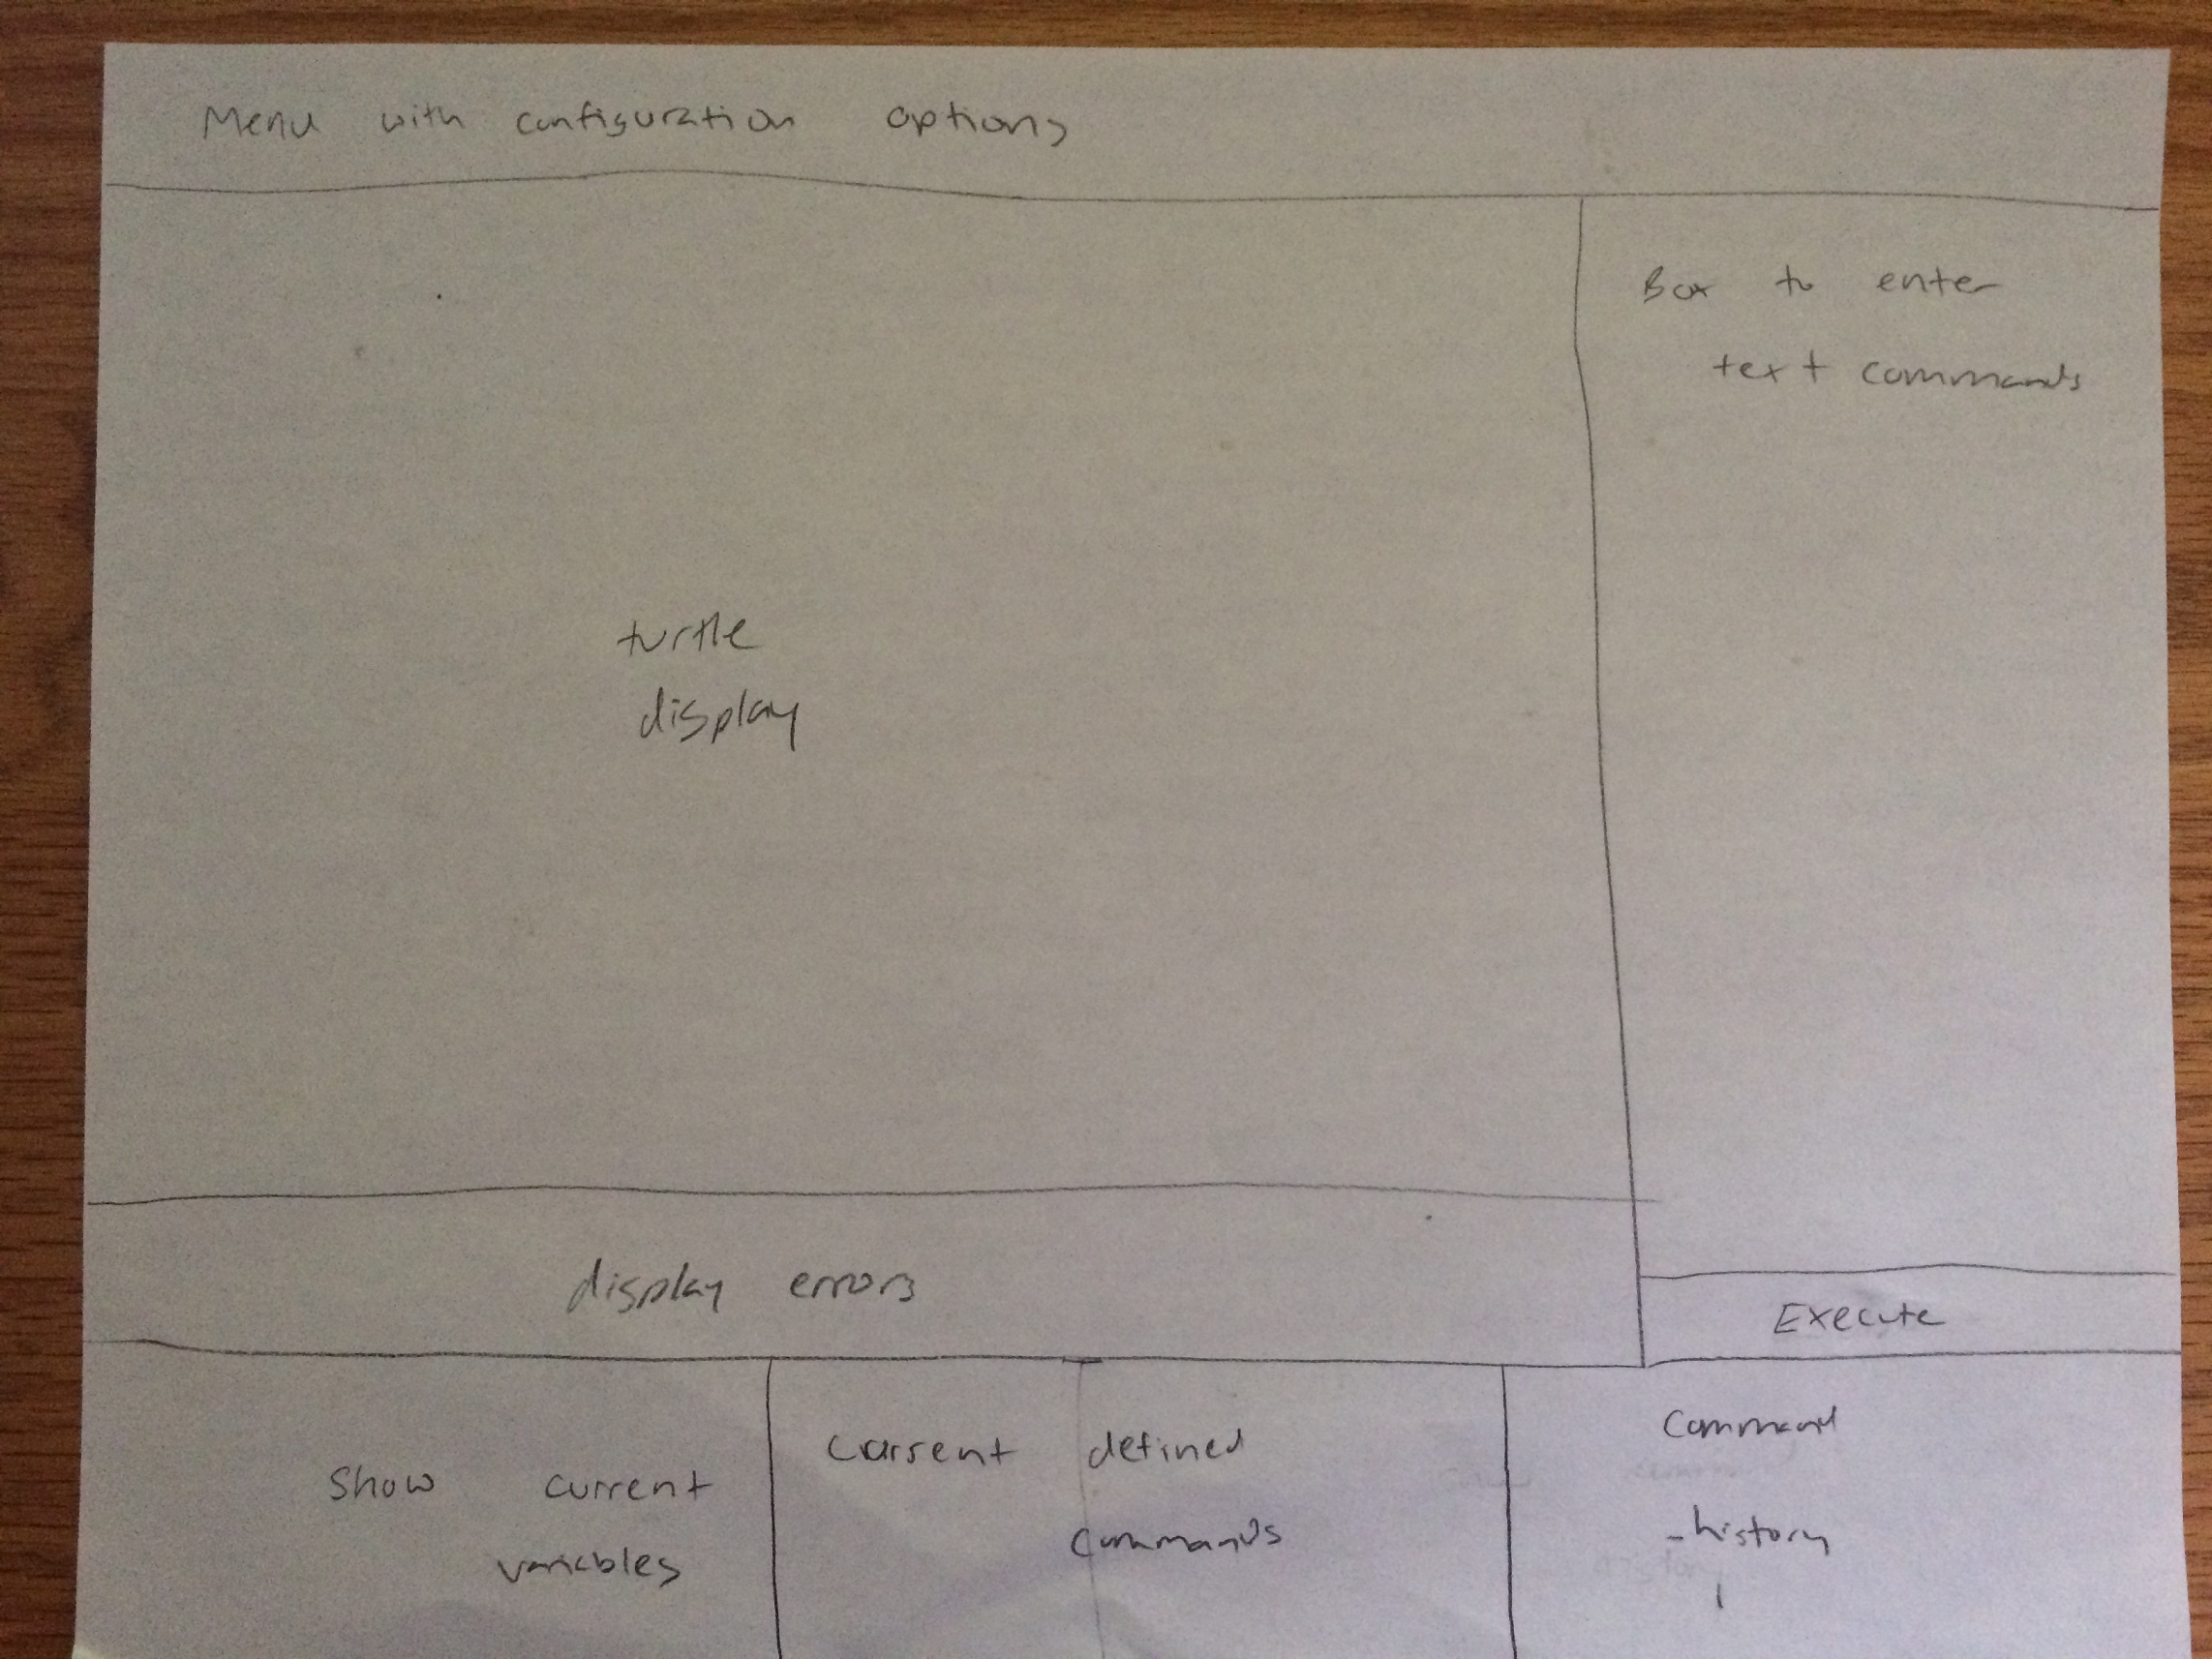 Menu with configuration options
Box to enter
text commands
turtle
display
display errors
Execute
Show current
variables
Current defined
commands
Command
-history